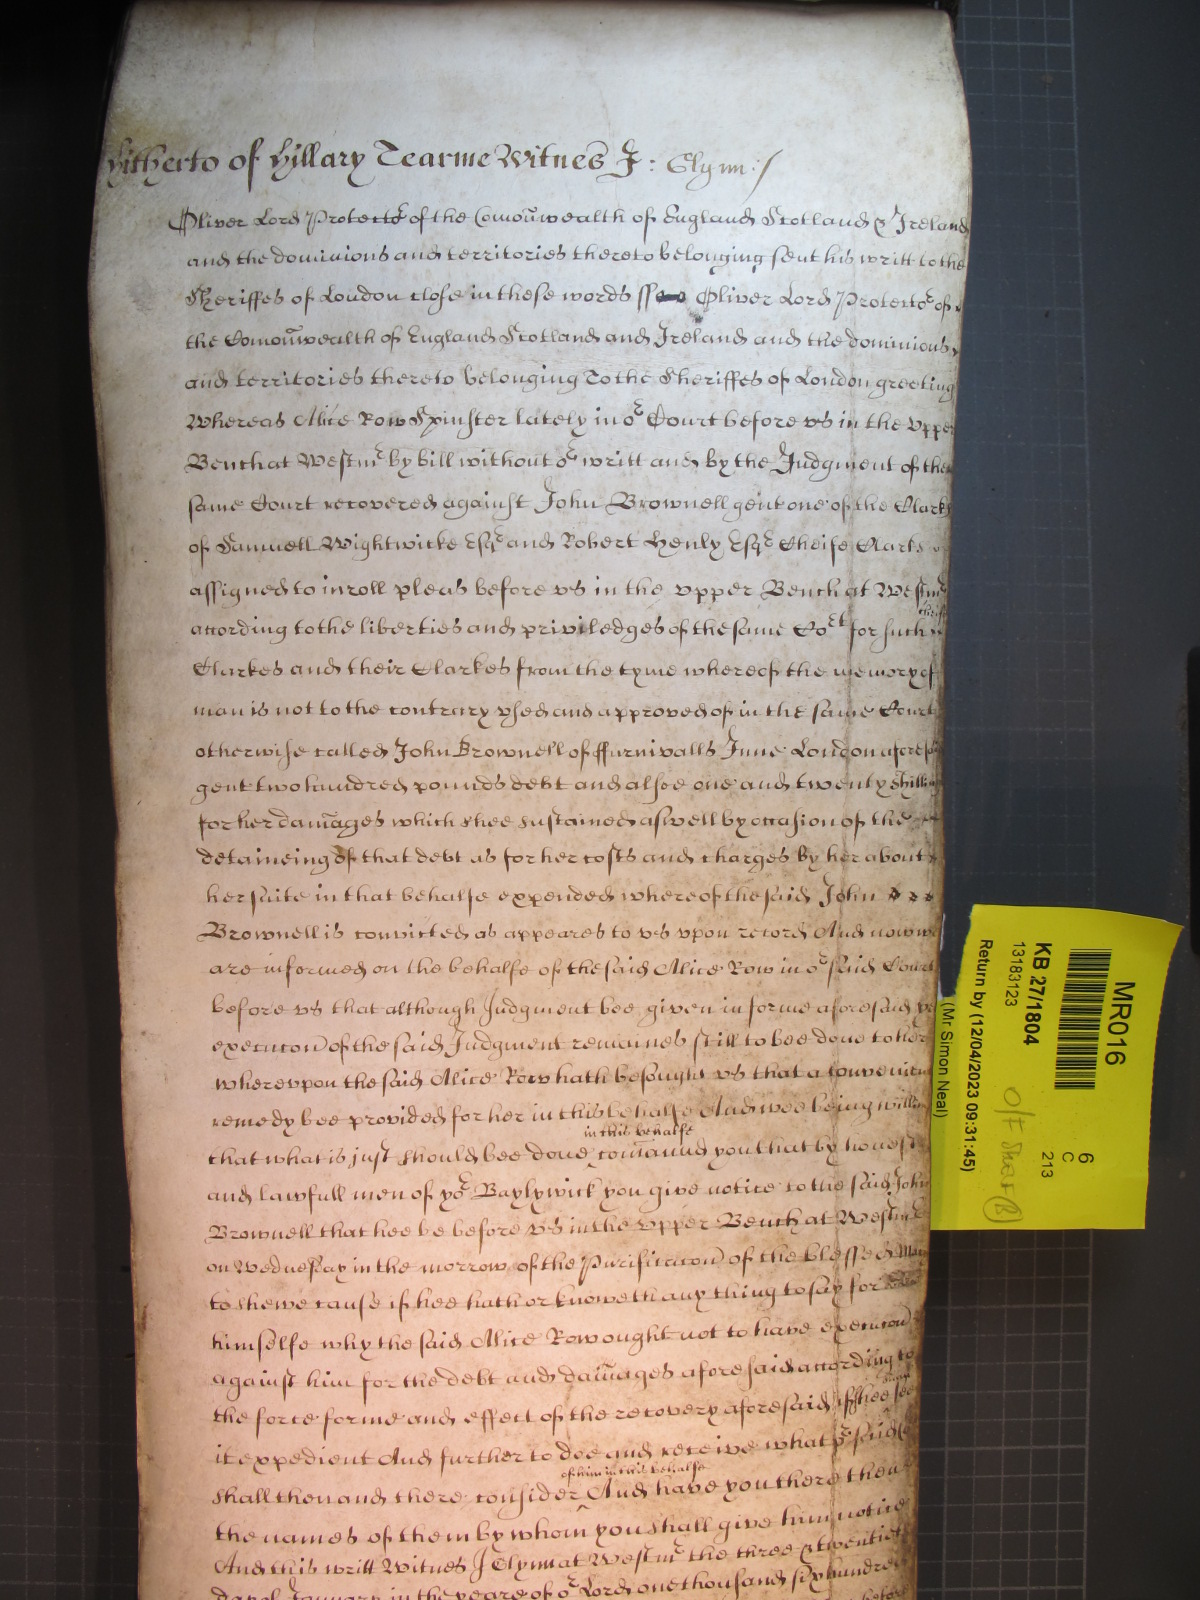 hitherto of Hillary Tearme Witnes J: Glynn:/
Oliver Lord Protectoʳ of the Comōnwealth of England Scotland & Ireland
and the dominions and territories thereto belonging sent his writt to the
Sheriffes of London close in these words ss Oliver Lord Protectoʳ of
the Comōnwealth of England Scotland and Ireland and the dominions
and territories thereto belonging To the Sheriffes of London greeting
Whereas Alice Row Spinster lately in oʳ Court before vs in the vpper
Bench at Westmʳ by bill without oʳ writt and by the Judgment of the
same Court recovered against John Brownell gent one of the Clarks
of Samuell Wightwicke Esqʳ and Robert Henly Esqʳ Cheife Clarks
assigned to inroll pleas before vs in the vpper Bench at Westmʳ
according to the liberties and priviledges of the same Coʳᵗ for such cheife
Clarkes and their Clarkes from the tyme whereof the memory of
man is not to the contrary vsed and approved of in the same Court
otherwise called John Brownell of ffurnivalls Inne London aforesaid
gent two hundred pounds debt and alsoe one and twenty shillings
for her dam̄ages which shee sustained aswell by occasion of the
detaineing of that debt as for her costs and charges by her about
her suite in that behalfe expended whereof the said John
Brownell is convicted as appeares to vs vpon record And now we
are informed on the behalfe of the said Alice Row in oʳ said Court
before vs that although Judgment bee given in forme aforesaid
execucon of the said Judgment remaines still to bee done to her
wherevpon the said Alice Row hath besought vs that a convenient
remedy bee provided for her in this behalfe And wee being willing
in this behalfe
that what is just should bee done com̄aund you that by honest
and lawfull men of yoʳ Baylywick you give notice to the said John
Brownell that hee be before vs in the vpper Bench at Westmʳ
on Wednesday in the morrow of the Purificacon of the blessed Mary
to shewe cause if hee hath or knoweth any thing to say for
himselfe why the said Alice Row ought not to have execucon
against him for the debt and dam̄ages aforesaid according to
the force forme and effect of the recovery aforesaid if shee see
it expedient And further to doe and receive what oʳ said Coʳᵗ
of him in this behalfe
shall then and there consider And have you there then
the names of them by whom you shall give him notice
And this writt Witnes J Glynn at Westmʳ the three & twentieth
day of January in the yeare of oʳ Lord one thousand six hundred
MR016
6
C
213
KB 27/1804
13183123
O/F Sheet (B)
Return by (12/04/2023 09:31:45)
(Mr Simon Neal)